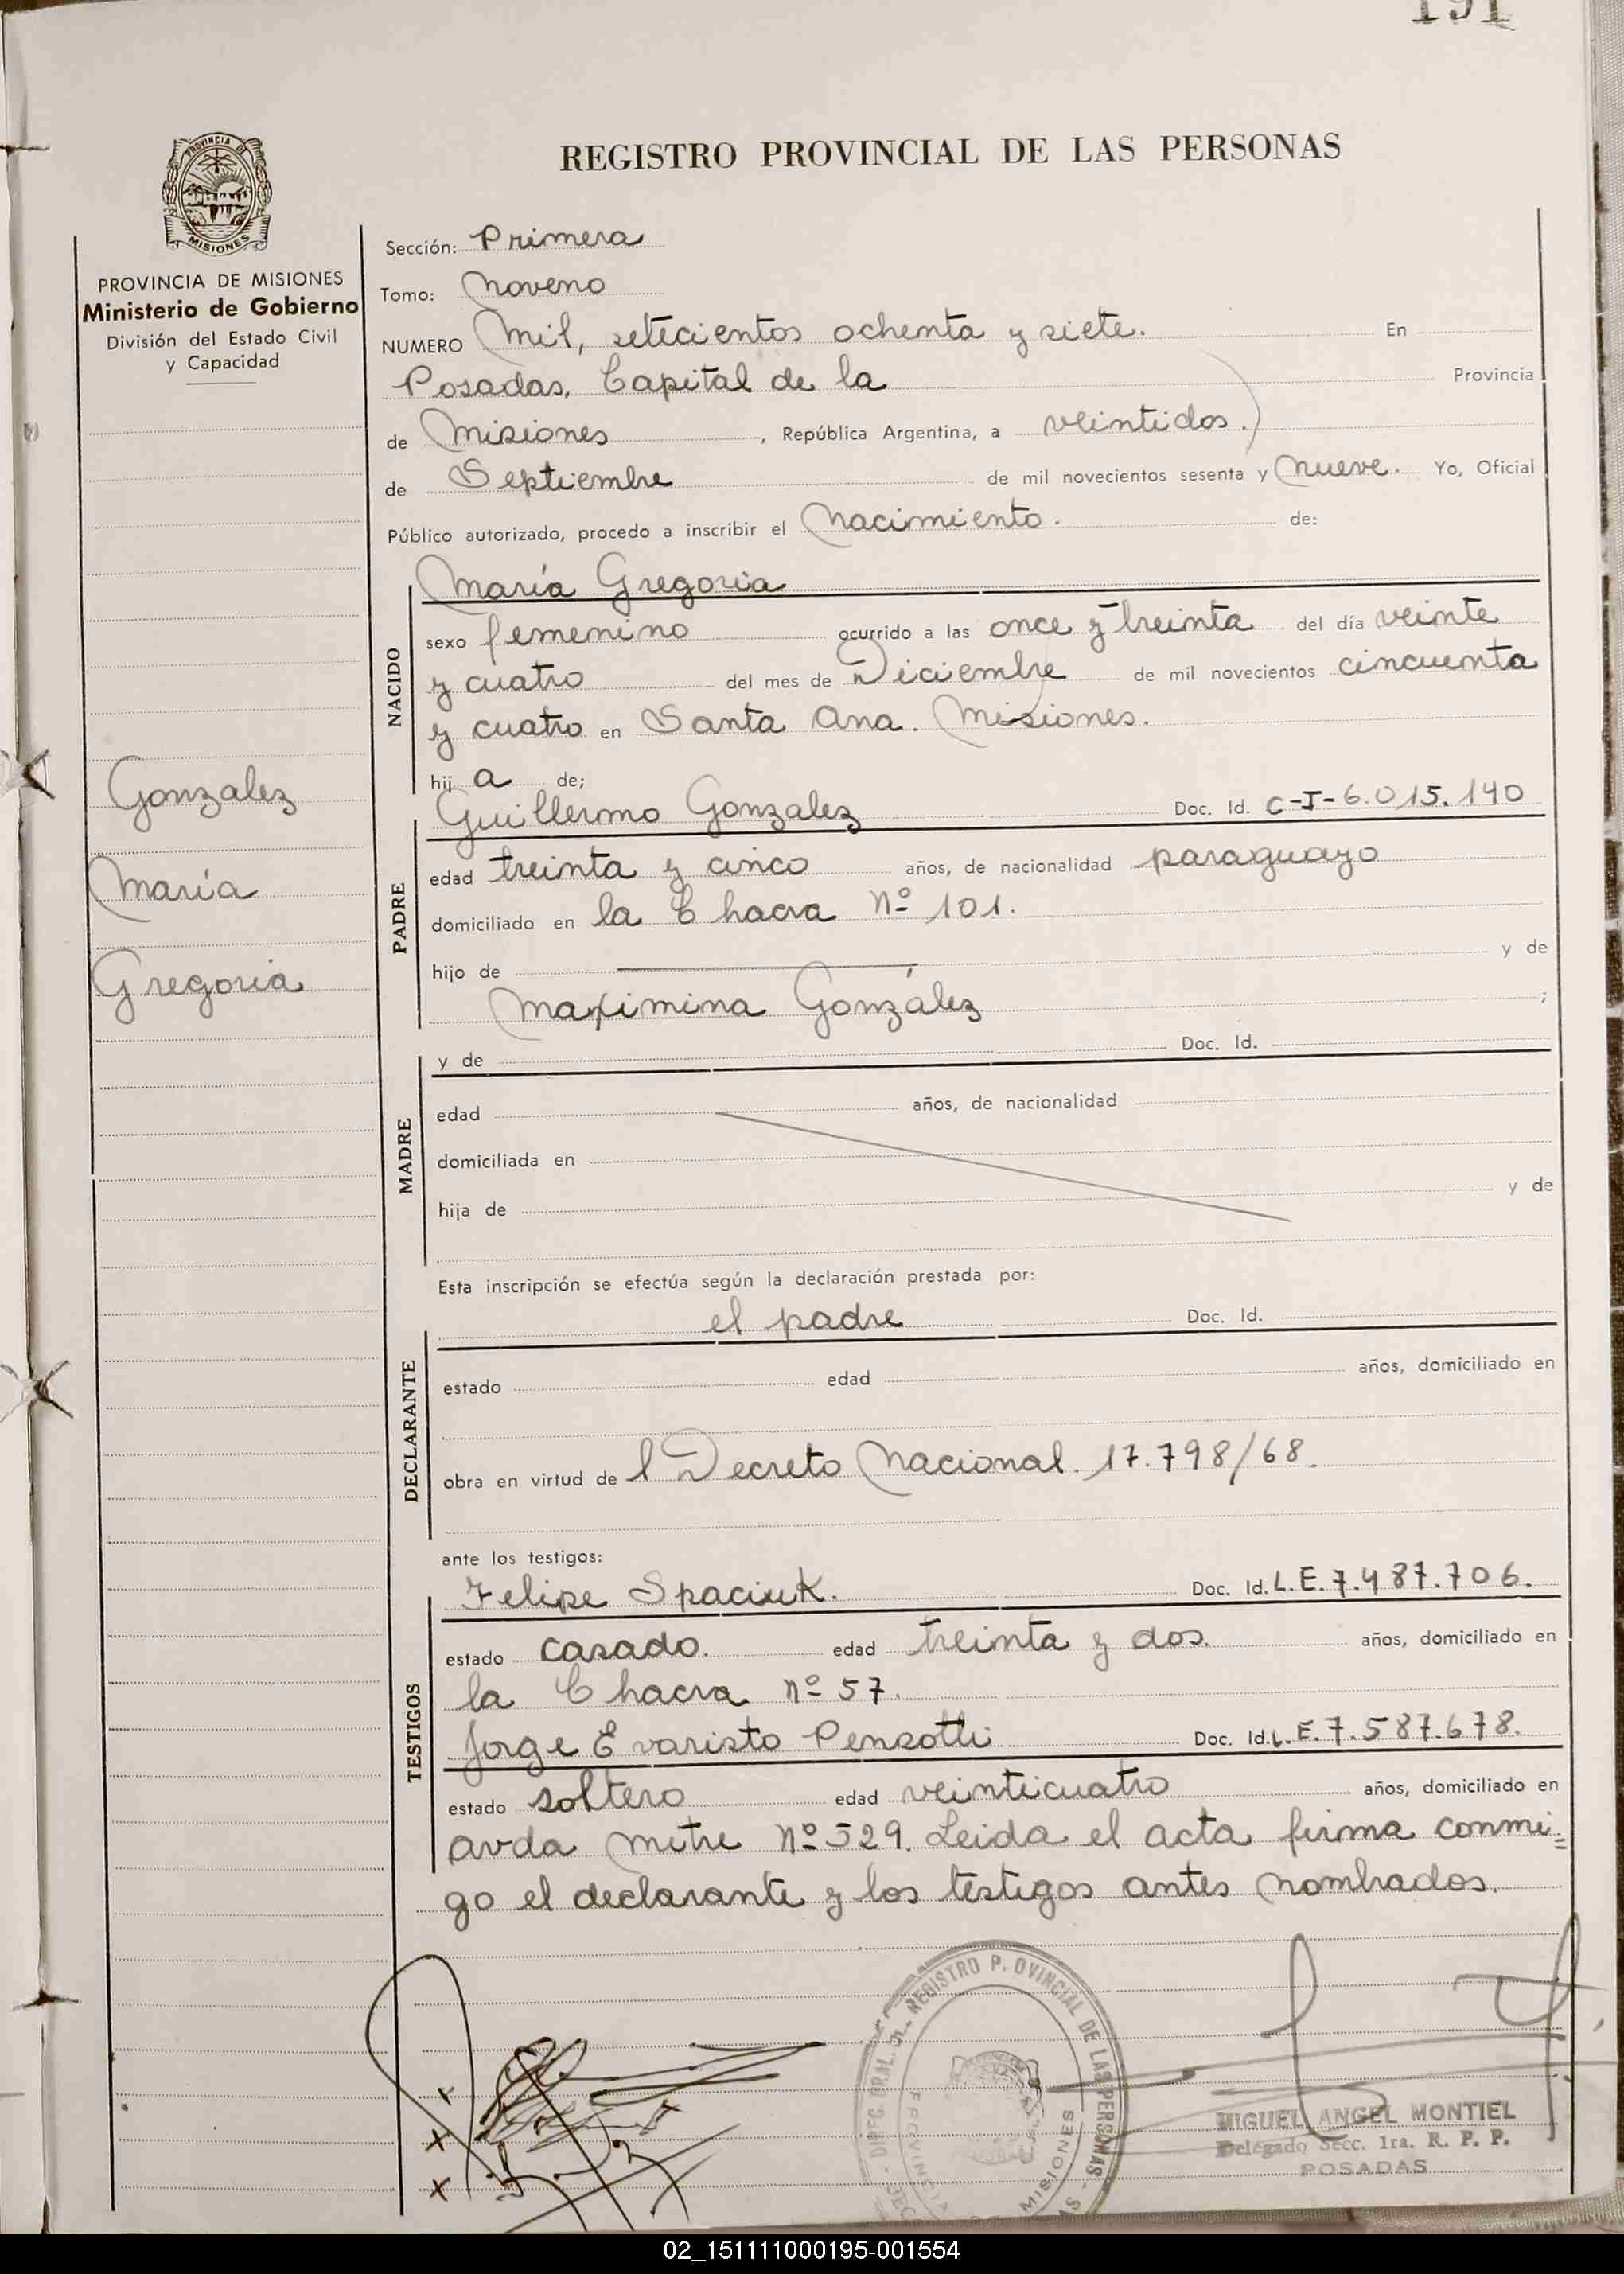 191
REGISTRO PROVINCIAL DE LAS PERSONAS
PROVINCIA DE
MISIONES
PROVINCIA DE MISIONES
Ministerio de Gobierno
División del Estado Civil
y Capacidad
Gonzalez
María
Gregoria
Sección: Primera
Tomo: Noveno
NUMERO Mil, setecientos ochenta y siete. En
Posadas, Capital de la Provincia
de Misiones, República Argentina, a veintidos.
de Septiembre de mil novecientos sesenta y nueve. Yo, Oficial
Público autorizado, procedo a inscribir el Nacimiento. de:
NACIDO
María Gregoria
sexo femenino ocurrido a las once y treinta del día veinte
y cuatro del mes de Diciembre de mil novecientos cincuenta
y cuatro en Santa Ana. Misiones.
hij a de;
PADRE
Guillermo Gonzalez Doc. Id. C-I-6.015.140
edad treinta y cinco años, de nacionalidad paraguayo
domiciliado en la Chacra Nº 101.
hijo de y de
Maximina González ;
MADRE
y de Doc. Id.
edad años, de nacionalidad
domiciliada en
hija de y de
Esta inscripción se efectúa según la declaración prestada por:
DECLARANTE
el padre Doc. Id.
estado edad años, domiciliado en
obra en virtud de l Decreto Nacional. 17.798/68.
ante los testigos:
TESTIGOS
Felipe Spaciuk. Doc. Id. L.E. 7.487.706.
estado casado. edad treinta y dos. años, domiciliado en
la Chacra Nº 57.
Jorge Evaristo Pensotti Doc. Id. L.E. 7.587.678.
estado soltero edad veinticuatro años, domiciliado en
avda Mitre Nº 529. Leida el acta firma conmi=
go el declarante y los testigos antes nombrados.
DIREC. GRAL. REGISTRO P.OVINCIAL DE LAS PERSONAS
MISIONES
MIGUEL ANGEL MONTIEL
Delegado Secc. 1ra. R. P. P.
POSADAS
02_151111000195-001554